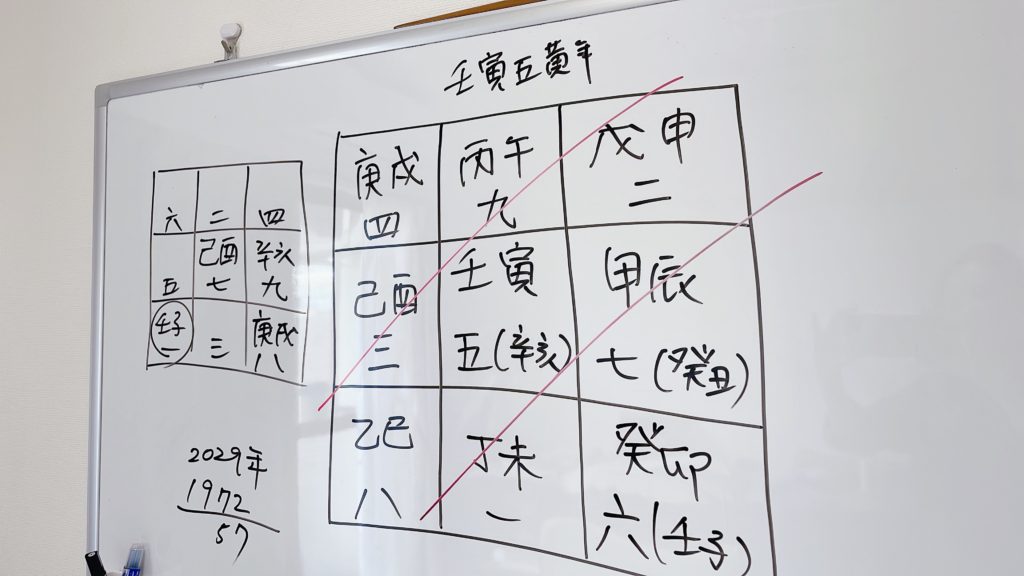 壬寅五黄年
庚戌 丙午 戊申
四 九 二
己酉 壬寅 甲辰
三 五(辛亥) 七(癸丑)
乙巳 丁未 癸卯
八 一 六(壬子)
六 二 四
己酉 辛亥
五 七 九
壬子 庚戌
一 三 八
2029年
1972
57